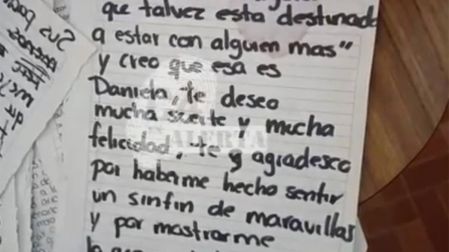 que talvez esta destinada
a estar con alguien mas"
y creo que esa es
Daniela, te deseo
mucha suerte y mucha
felicidad, te y agradesco
por haberme hecho sentir
un sinfin de maravillas
y por mostrarme
ALERTA